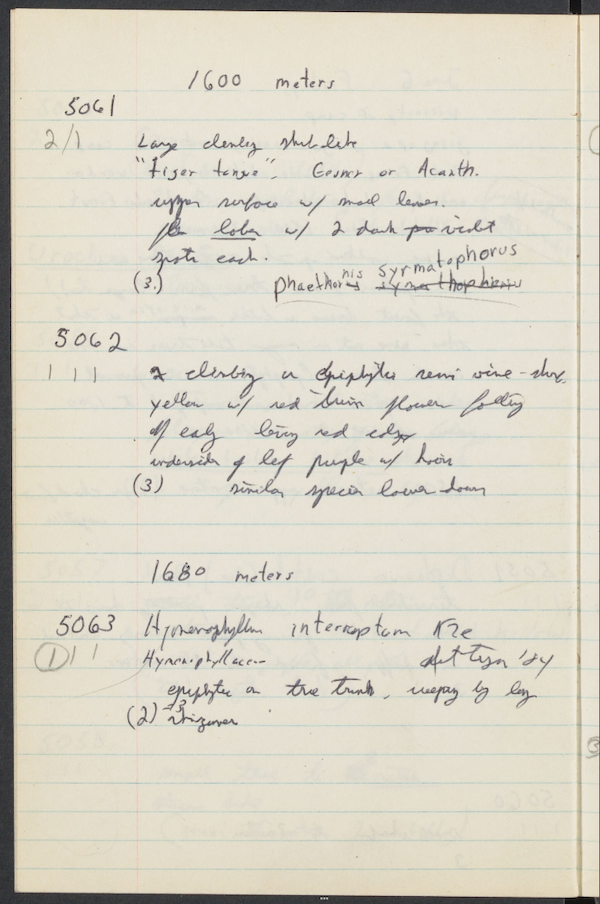 1600 meters
5061
2/1 Large climbing shrub-like
"tiger tongue". Gesner or Acanth.
upper surface w/ small leaves.
lobes w/ 2 dark violet
spots each.
(3) phaethornis syrmatophorus
5062
1 1 1 climbing or epiphytic semi vine-shrub,
yellow w/ red hairs flowers falling
off early leaving red calyx
underside of leaf purple w/ hairs
(3) similar species lower down
1680 meters
5063 Hymenophyllum interruptum Kze
1 1 1 Hymenophyllaceae det Tryon '84
epiphyte on tree trunk, creeping by long
(2) rhizomes